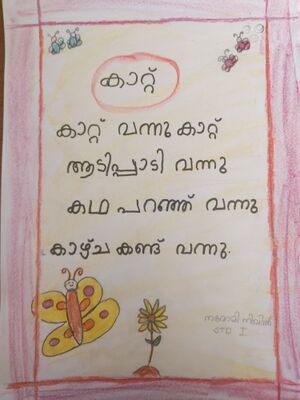 കാറ്റ്
കാറ്റ് വന്നു കാറ്റ്
ആടിപ്പാടി വന്നു
കഥ പറഞ്ഞ് വന്നു
കാഴ്ച കണ്ട് വന്നു.
നവോമി നിഖിൽ
STD I